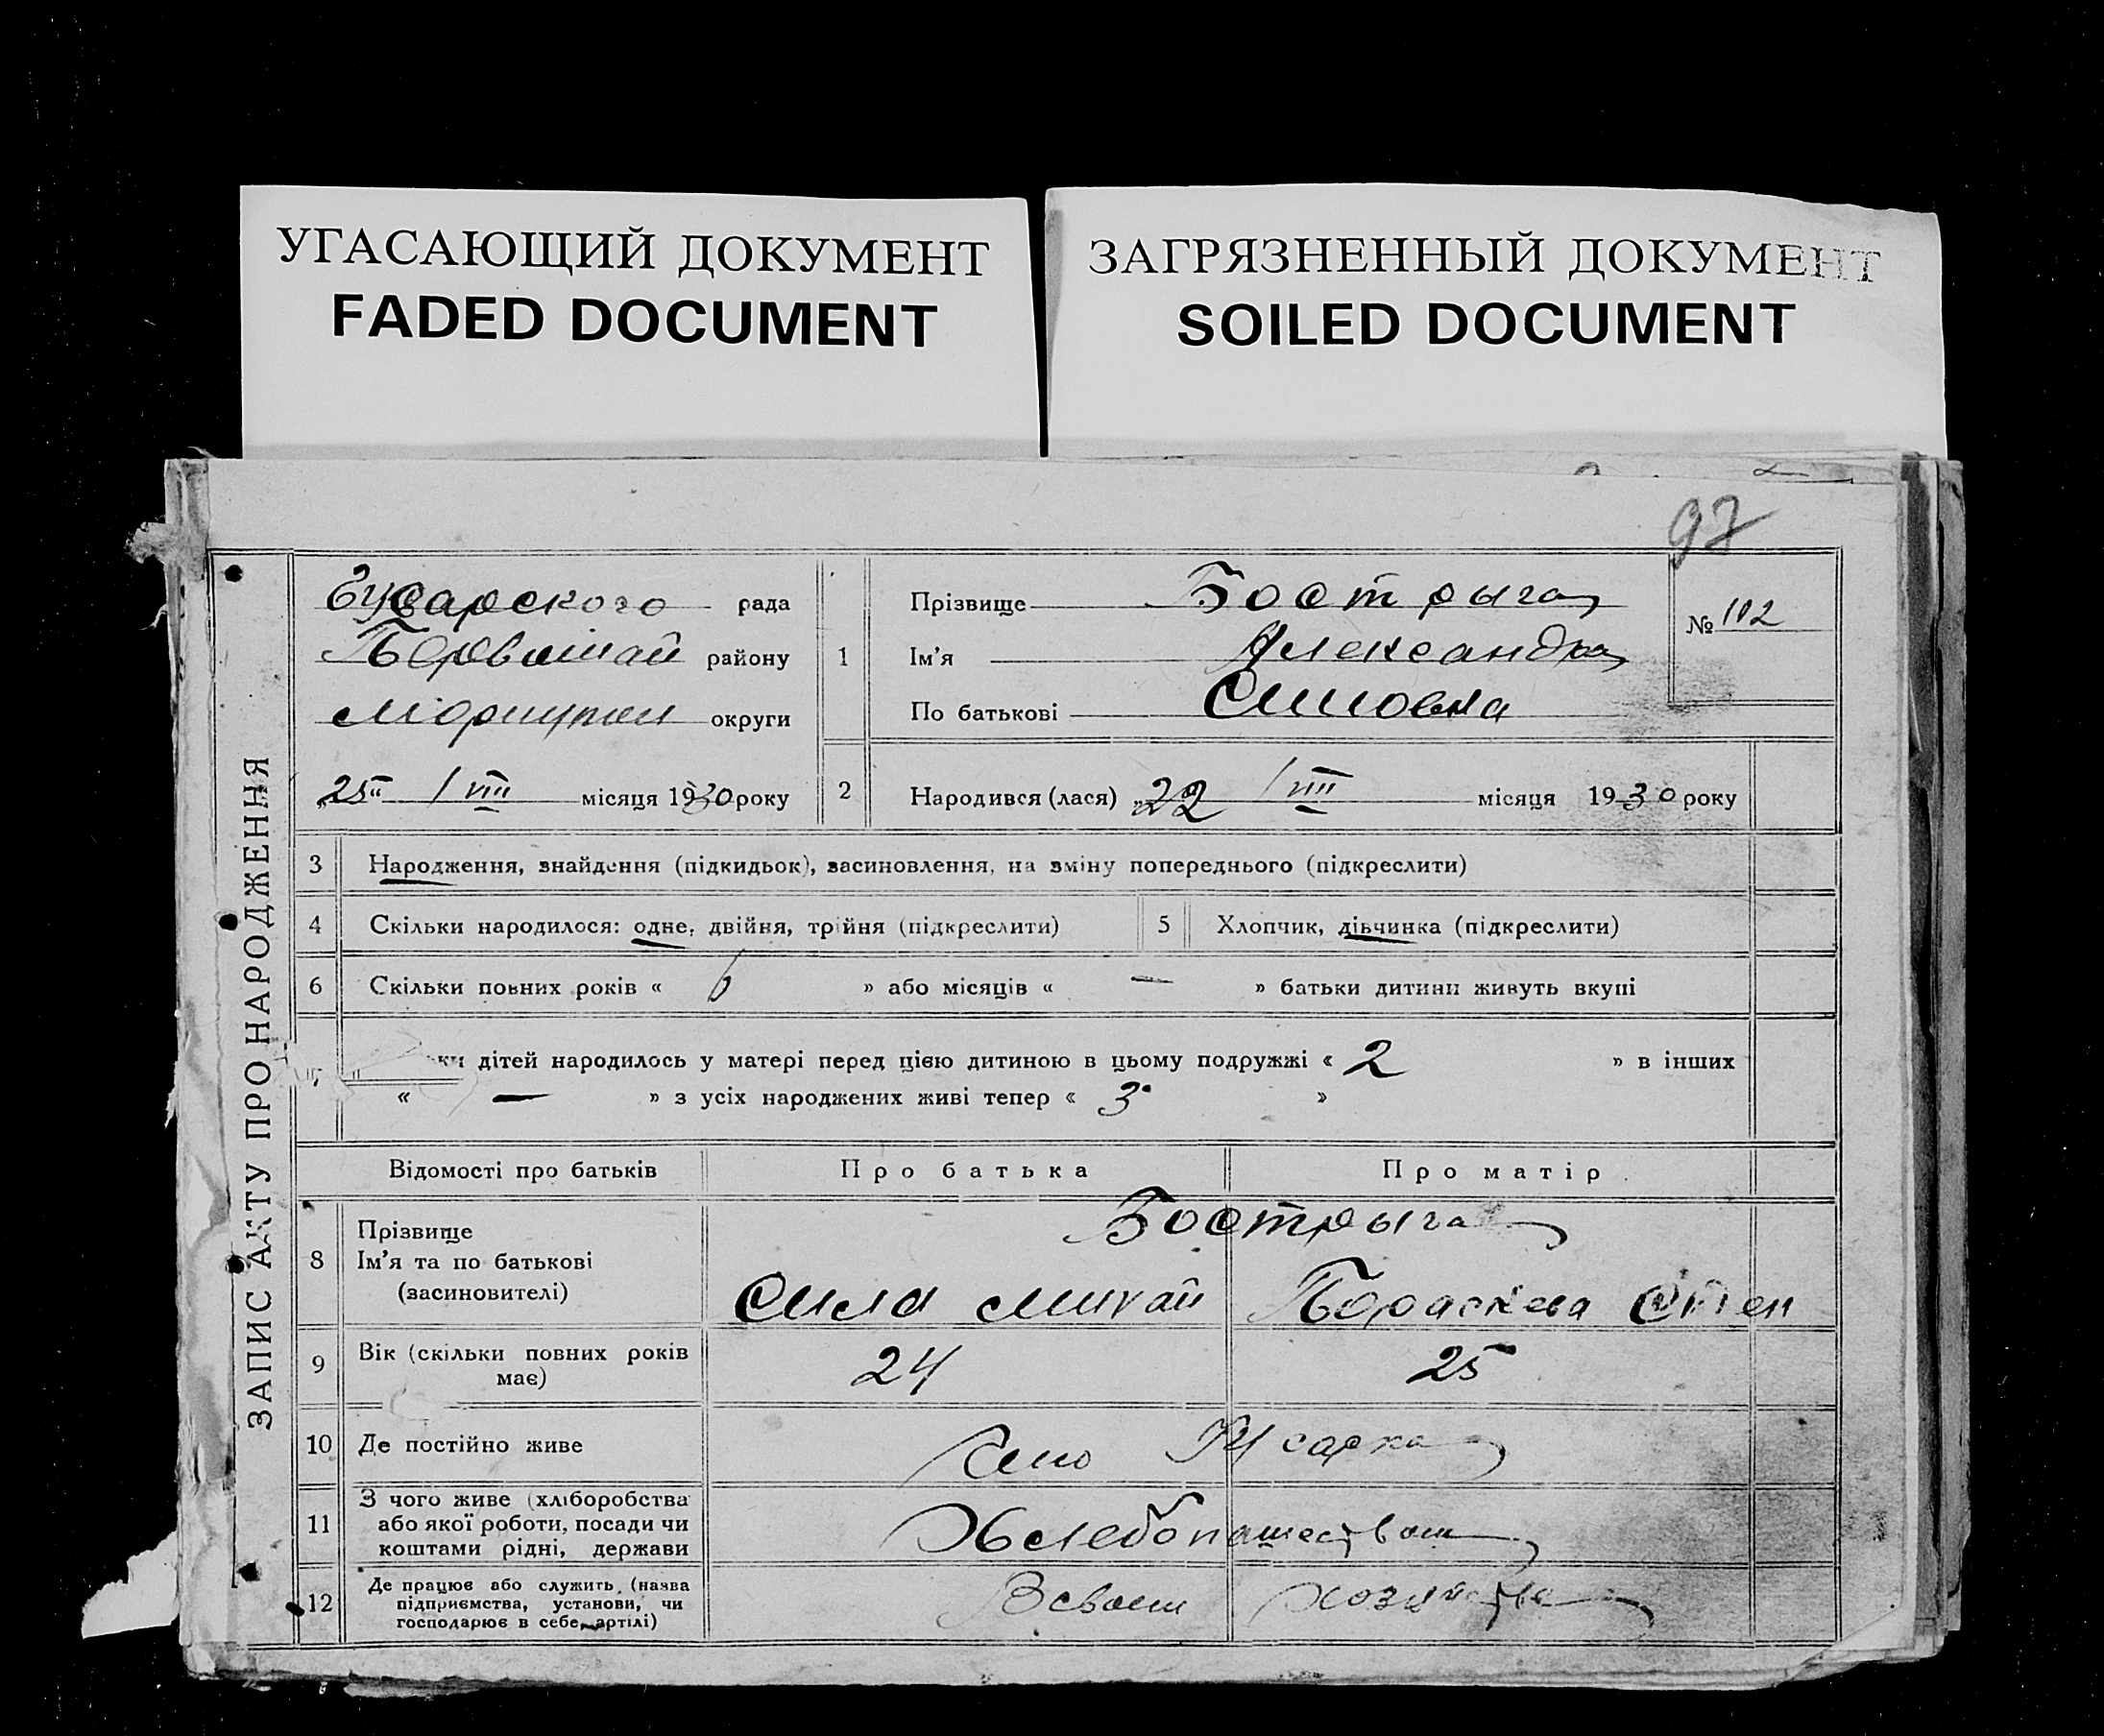 УГАСАЮЩИЙ ДОКУМЕНТ
FADED DOCUMENT
ЗАГРЯЗНЕННЫЙ ДОКУМЕНТ
SOILED DOCUMENT
97
ЗАПИС АКТУ ПРО НАРОДЖЕННЯ
рада
району
округи
„25“ / VIII місяця 1930 року
1
Прізвище Бострыга
Ім’я Александра
По батькові Силовна
№ 112
2 Народився (лася) „22 / VIII місяця 1930 року
3 Народження, знайдення (підкидьок), засиновлення, на зміну попереднього (підкреслити)
4 Скільки народилося: одне, двійня, трійня (підкреслити)
5 Хлопчик, дівчинка (підкреслити)
6 Скільки повних років « 6 » або місяців « — » батьки дитини живуть вкупі
ки дітей народилось у матері перед цією дитиною в цьому подружжі « 2 » в інших
« — » з усіх народжених живі тепер « 3 »
Відомості про батьків Про батька Про матір
8 Прізвище Бострыга
Ім’я та по батькові
(засиновителі) Сила Михай Параскева Степ
9 Вік (скільки повних років 24 25
має)
10 Де постійно живе Село Гусарка
11 З чого живе (хліборобства
або якої роботи, посади чи Хлебопашеством
коштами рідні, держави
12 Де працює або служить (назва
підприємства, установи, чи В своем хозяйстве
господарює в себе, артілі)